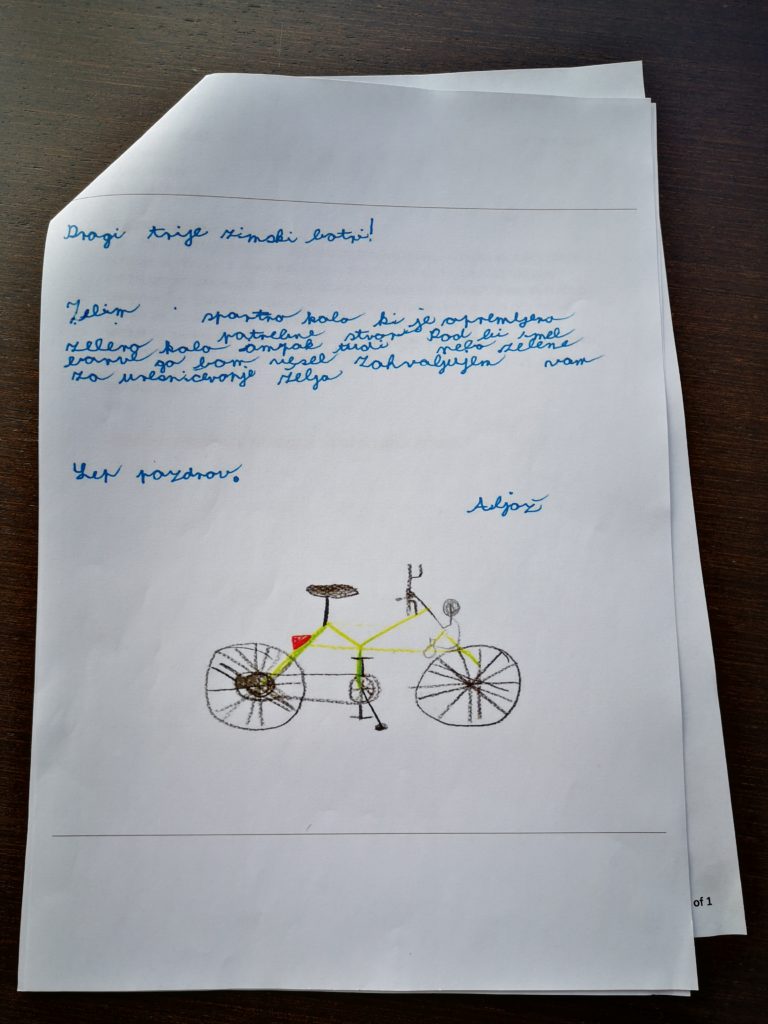 Dragi trije zimski botri!
Želim sportno kolo ki je opremljeno
potrebne stvari Rad bi imel
zeleno kolo ampak tudi nebo zelene
barve ga bom vesel Zahvaljujem vam
za uresničevanje želja
Lep pozdrov.
Aljaž
of 1